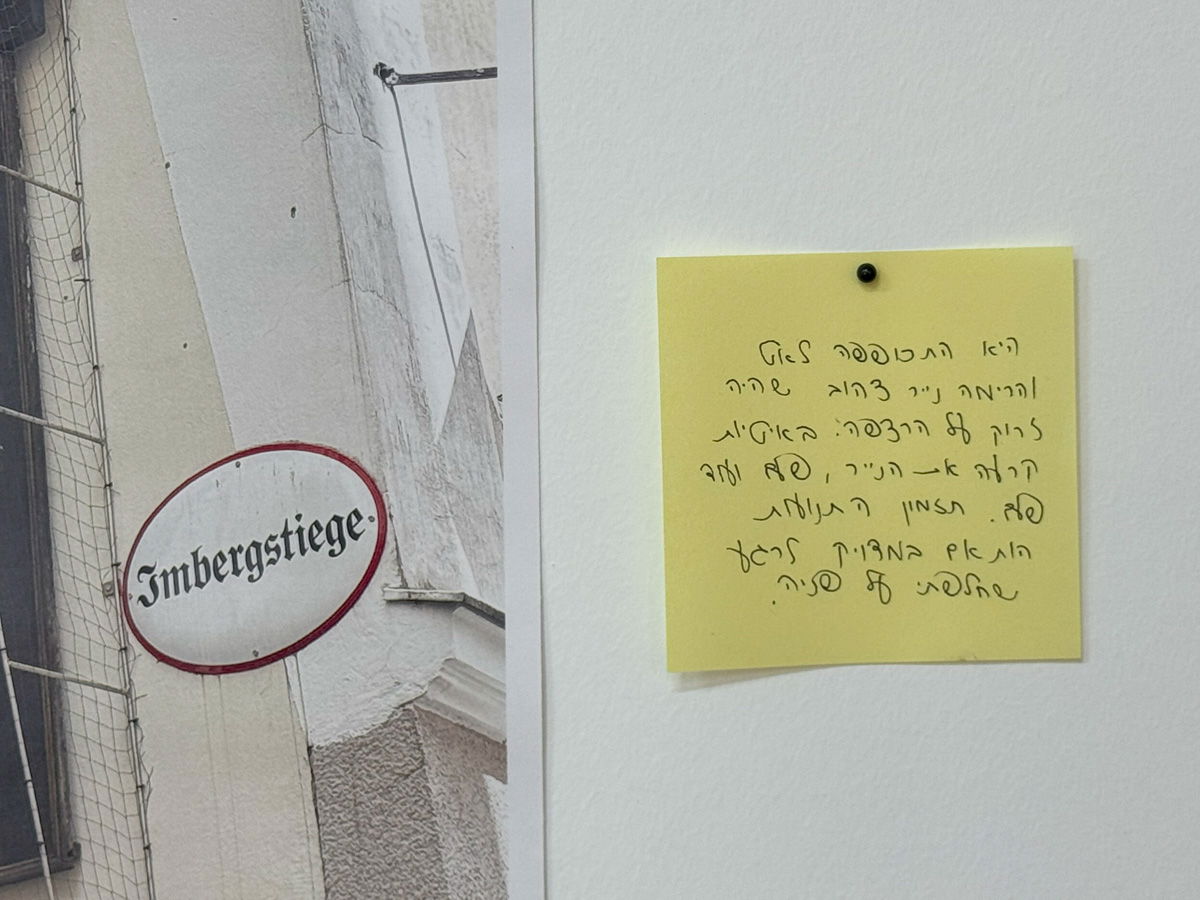 Imbergstiege
היא התכופפה לאט
והרימה נייר צהוב שהיה
זרוק על הרצפה. באיטיות
קרעה את הנייר, פעם ועוד
פעם. תזמון התנועות
הותאם במדויק לרגע
שחלפתי על פניה.